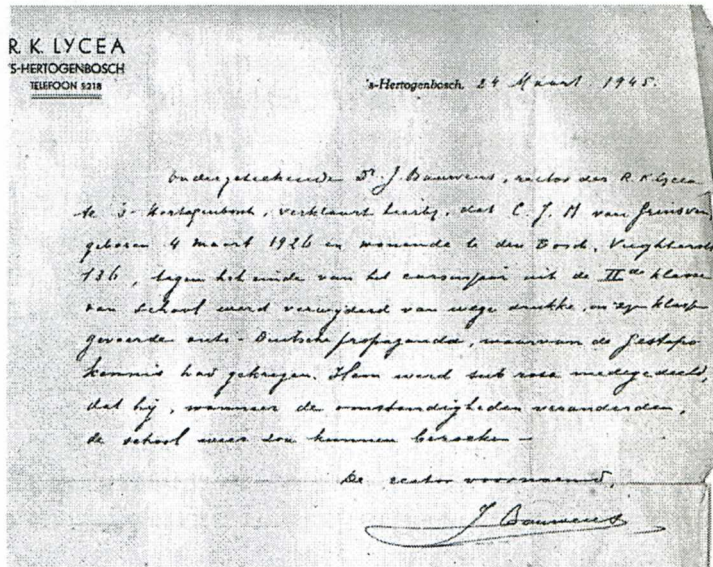 R. K. LYCEA
'S-HERTOGENBOSCH
TELEFOON 5218
's-Hertogenbosch, 24 Maart 1945.
ondergeteekende Dr. J. Bauwens, rector der R.K. Lycea
te 's-Hertogenbosch, verklaart hierbij, dat C. J. M. van
geboren 4 maart 1926 en wonende te den Bosch,
136, tegen het einde van het cursusjaar uit de IIde klasse
van school werd verwijderd van wege drukke, in zijn klasse
gevoerde anti-Duitsche propaganda, waarvan de Gestapo
kennis had gekregen. Hem werd sub rosa medegedeeld,
dat hij, wanneer de omstandigheden veranderden,
de school weer zou kunnen bezoeken —
De rector voornoemd,
J Bauwens